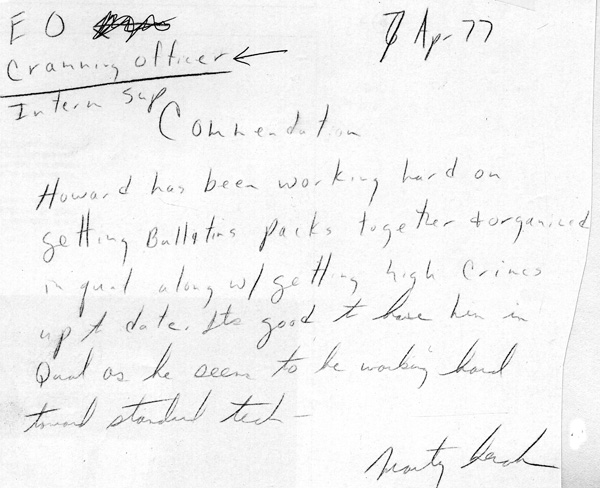 E O
7 Apr 77
Cramming officer ←
Intern Sup
Commendation
Howard has been working hard on
getting Bulletins packs together & organized
in qual along w/ getting high Crimes
up t date. Its good to have him in
Qual as he seems to be working hard
toward standard tech -
Marty